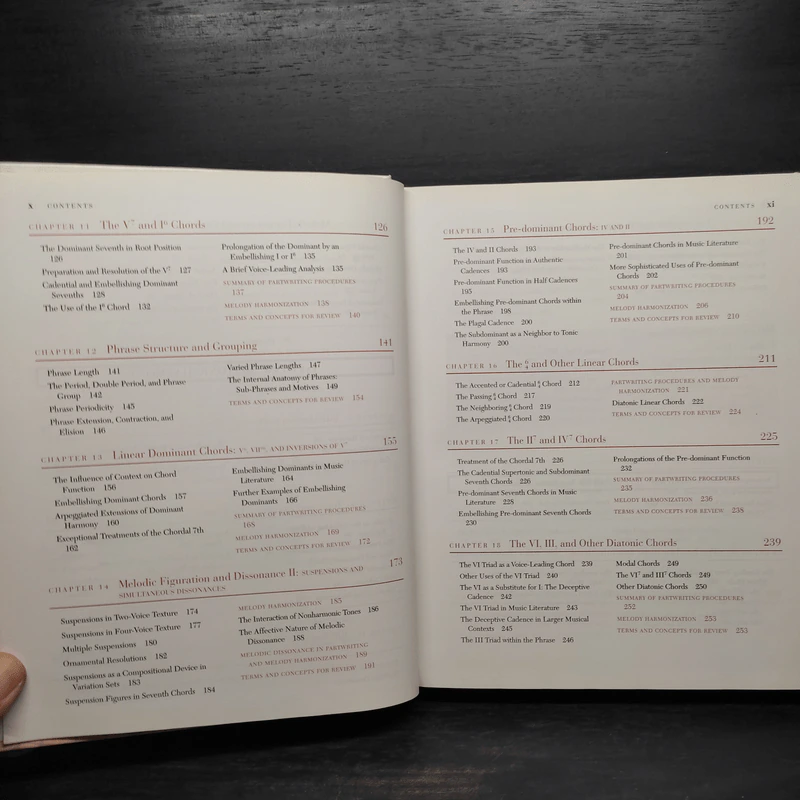 x CONTENTS
CHAPTER 11 The V⁷ and I⁶ Chords 126
The Dominant Seventh in Root Position
126
Preparation and Resolution of the V⁷ 127
Cadential and Embellishing Dominant
Sevenths 128
The Use of the I⁶ Chord 132
Prolongation of the Dominant by an
Embellishing I or I⁶ 135
A Brief Voice-Leading Analysis 135
SUMMARY OF PARTWRITING PROCEDURES
137
MELODY HARMONIZATION 138
TERMS AND CONCEPTS FOR REVIEW 140
CHAPTER 12 Phrase Structure and Grouping 141
Phrase Length 141
The Period, Double Period, and Phrase
Group 142
Phrase Periodicity 145
Phrase Extension, Contraction, and
Elision 146
Varied Phrase Lengths 147
The Internal Anatomy of Phrases:
Sub-Phrases and Motives 149
TERMS AND CONCEPTS FOR REVIEW 154
CHAPTER 13 Linear Dominant Chords: V⁶, VII°⁶, AND INVERSIONS OF V⁷ 155
The Influence of Context on Chord
Function 156
Embellishing Dominant Chords 157
Arpeggiated Extensions of Dominant
Harmony 160
Exceptional Treatments of the Chordal 7th
162
Embellishing Dominants in Music
Literature 164
Further Examples of Embellishing
Dominants 166
SUMMARY OF PARTWRITING PROCEDURES
168
MELODY HARMONIZATION 169
TERMS AND CONCEPTS FOR REVIEW 172
CHAPTER 14 Melodic Figuration and Dissonance II: SUSPENSIONS AND 173
SIMULTANEOUS DISSONANCES
Suspensions in Two-Voice Texture 174
Suspensions in Four-Voice Texture 177
Multiple Suspensions 180
Ornamental Resolutions 182
Suspensions as a Compositional Device in
Variation Sets 183
Suspension Figures in Seventh Chords 184
MELODY HARMONIZATION 185
The Interaction of Nonharmonic Tones 186
The Affective Nature of Melodic
Dissonance 188
MELODIC DISSONANCE IN PARTWRITING
AND MELODY HARMONIZATION 189
TERMS AND CONCEPTS FOR REVIEW 191
CONTENTS xi
CHAPTER 15 Pre-dominant Chords: IV AND II 192
The IV and II Chords 193
Pre-dominant Function in Authentic
Cadences 193
Pre-dominant Function in Half Cadences
195
Embellishing Pre-dominant Chords within
the Phrase 198
The Plagal Cadence 200
The Subdominant as a Neighbor to Tonic
Harmony 200
Pre-dominant Chords in Music Literature
201
More Sophisticated Uses of Pre-dominant
Chords 202
SUMMARY OF PARTWRITING PROCEDURES
204
MELODY HARMONIZATION 206
TERMS AND CONCEPTS FOR REVIEW 210
CHAPTER 16 The ⁶₄ and Other Linear Chords 211
The Accented or Cadential ⁶₄ Chord 212
The Passing ⁶₄ Chord 217
The Neighboring ⁶₄ Chord 219
The Arpeggiated ⁶₄ Chord 220
PARTWRITING PROCEDURES AND MELODY
HARMONIZATION 221
Diatonic Linear Chords 222
TERMS AND CONCEPTS FOR REVIEW 224
CHAPTER 17 The II⁷ and IV⁷ Chords 225
Treatment of the Chordal 7th 226
The Cadential Supertonic and Subdominant
Seventh Chords 226
Pre-dominant Seventh Chords in Music
Literature 228
Embellishing Pre-dominant Seventh Chords
230
Prolongations of the Pre-dominant Function
232
SUMMARY OF PARTWRITING PROCEDURES
235
MELODY HARMONIZATION 236
TERMS AND CONCEPTS FOR REVIEW 238
CHAPTER 18 The VI, III, and Other Diatonic Chords 239
The VI Triad as a Voice-Leading Chord 239
Other Uses of the VI Triad 240
The VI as a Substitute for I: The Deceptive
Cadence 242
The VI Triad in Music Literature 243
The Deceptive Cadence in Larger Musical
Contexts 245
The III Triad within the Phrase 246
Modal Chords 249
The VI⁷ and III⁷ Chords 249
Other Diatonic Chords 250
SUMMARY OF PARTWRITING PROCEDURES
252
MELODY HARMONIZATION 253
TERMS AND CONCEPTS FOR REVIEW 253